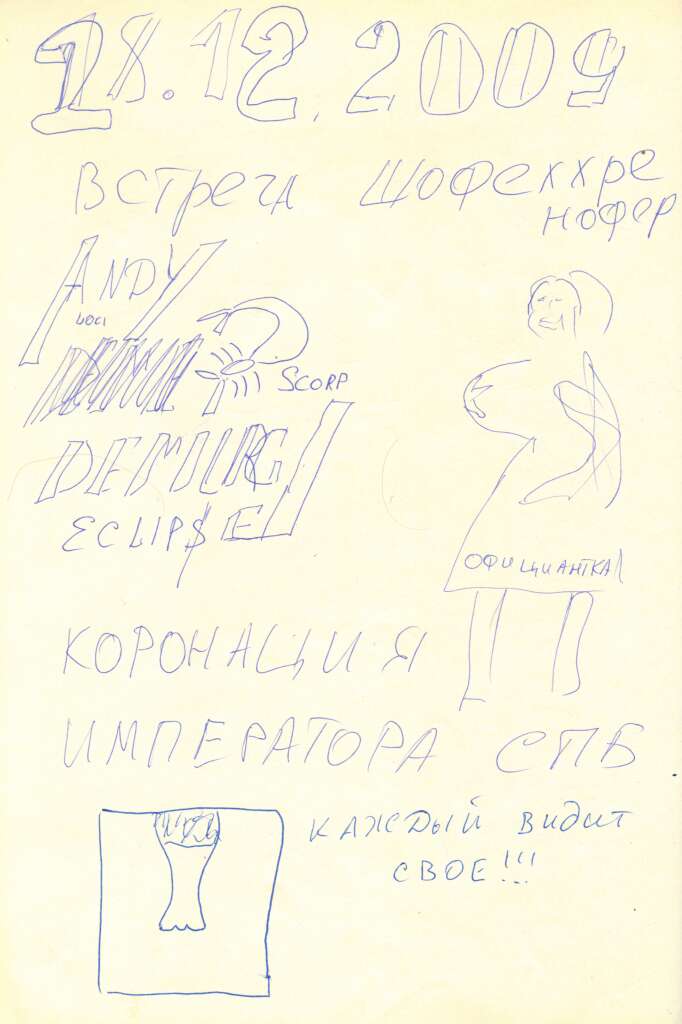 28.12.2009
Встреча Шофеххре
нофер
ANDY
SCORP
DEMIURG
ECLIPSE
ОФИЦИАНТКА
КОРОНАЦИЯ
ИМПЕРАТОРА СПБ
КАЖДЫЙ ВИДИТ
СВОЕ!!!